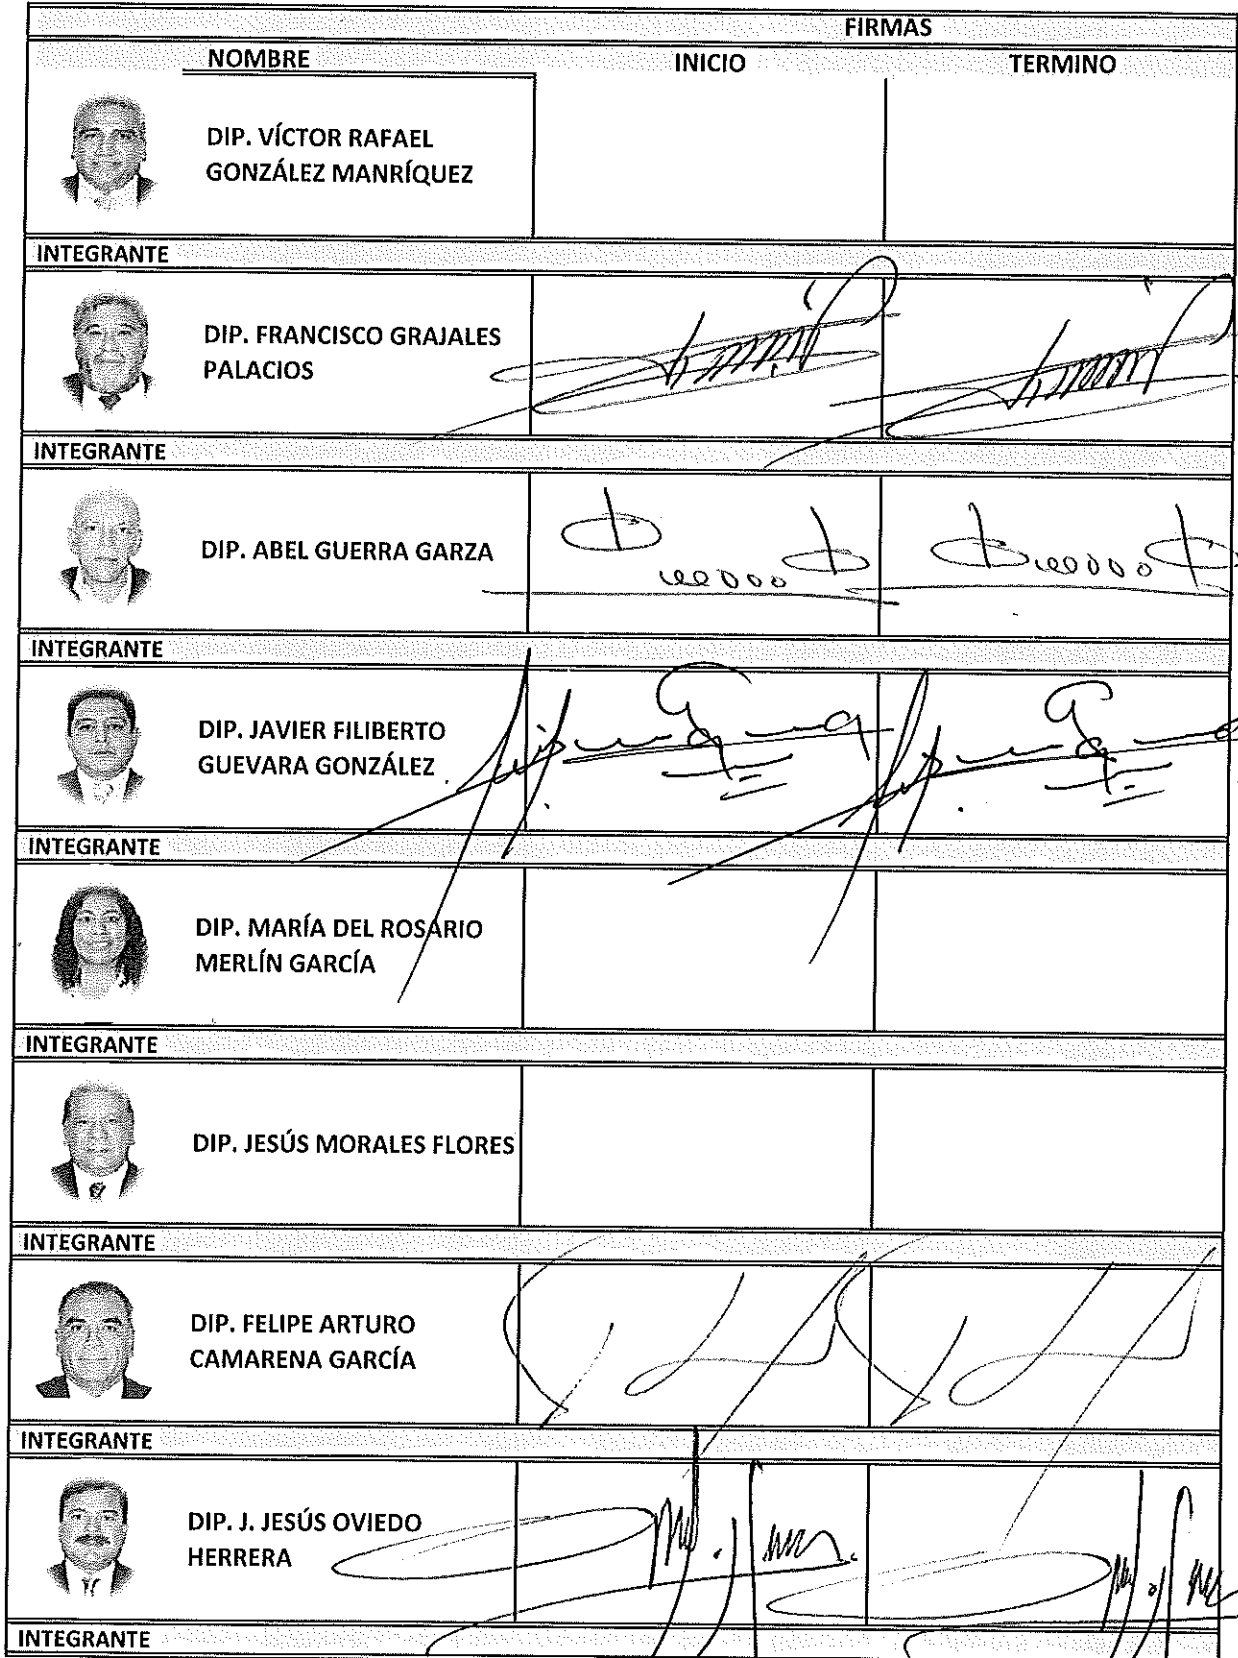 FIRMAS
NOMBRE INICIO TERMINO
DIP. VÍCTOR RAFAEL
GONZÁLEZ MANRÍQUEZ
INTEGRANTE
DIP. FRANCISCO GRAJALES
PALACIOS
INTEGRANTE
DIP. ABEL GUERRA GARZA
INTEGRANTE
DIP. JAVIER FILIBERTO
GUEVARA GONZÁLEZ
INTEGRANTE
DIP. MARÍA DEL ROSARIO
MERLÍN GARCÍA
INTEGRANTE
DIP. JESÚS MORALES FLORES
INTEGRANTE
DIP. FELIPE ARTURO
CAMARENA GARCÍA
INTEGRANTE
DIP. J. JESÚS OVIEDO
HERRERA
INTEGRANTE